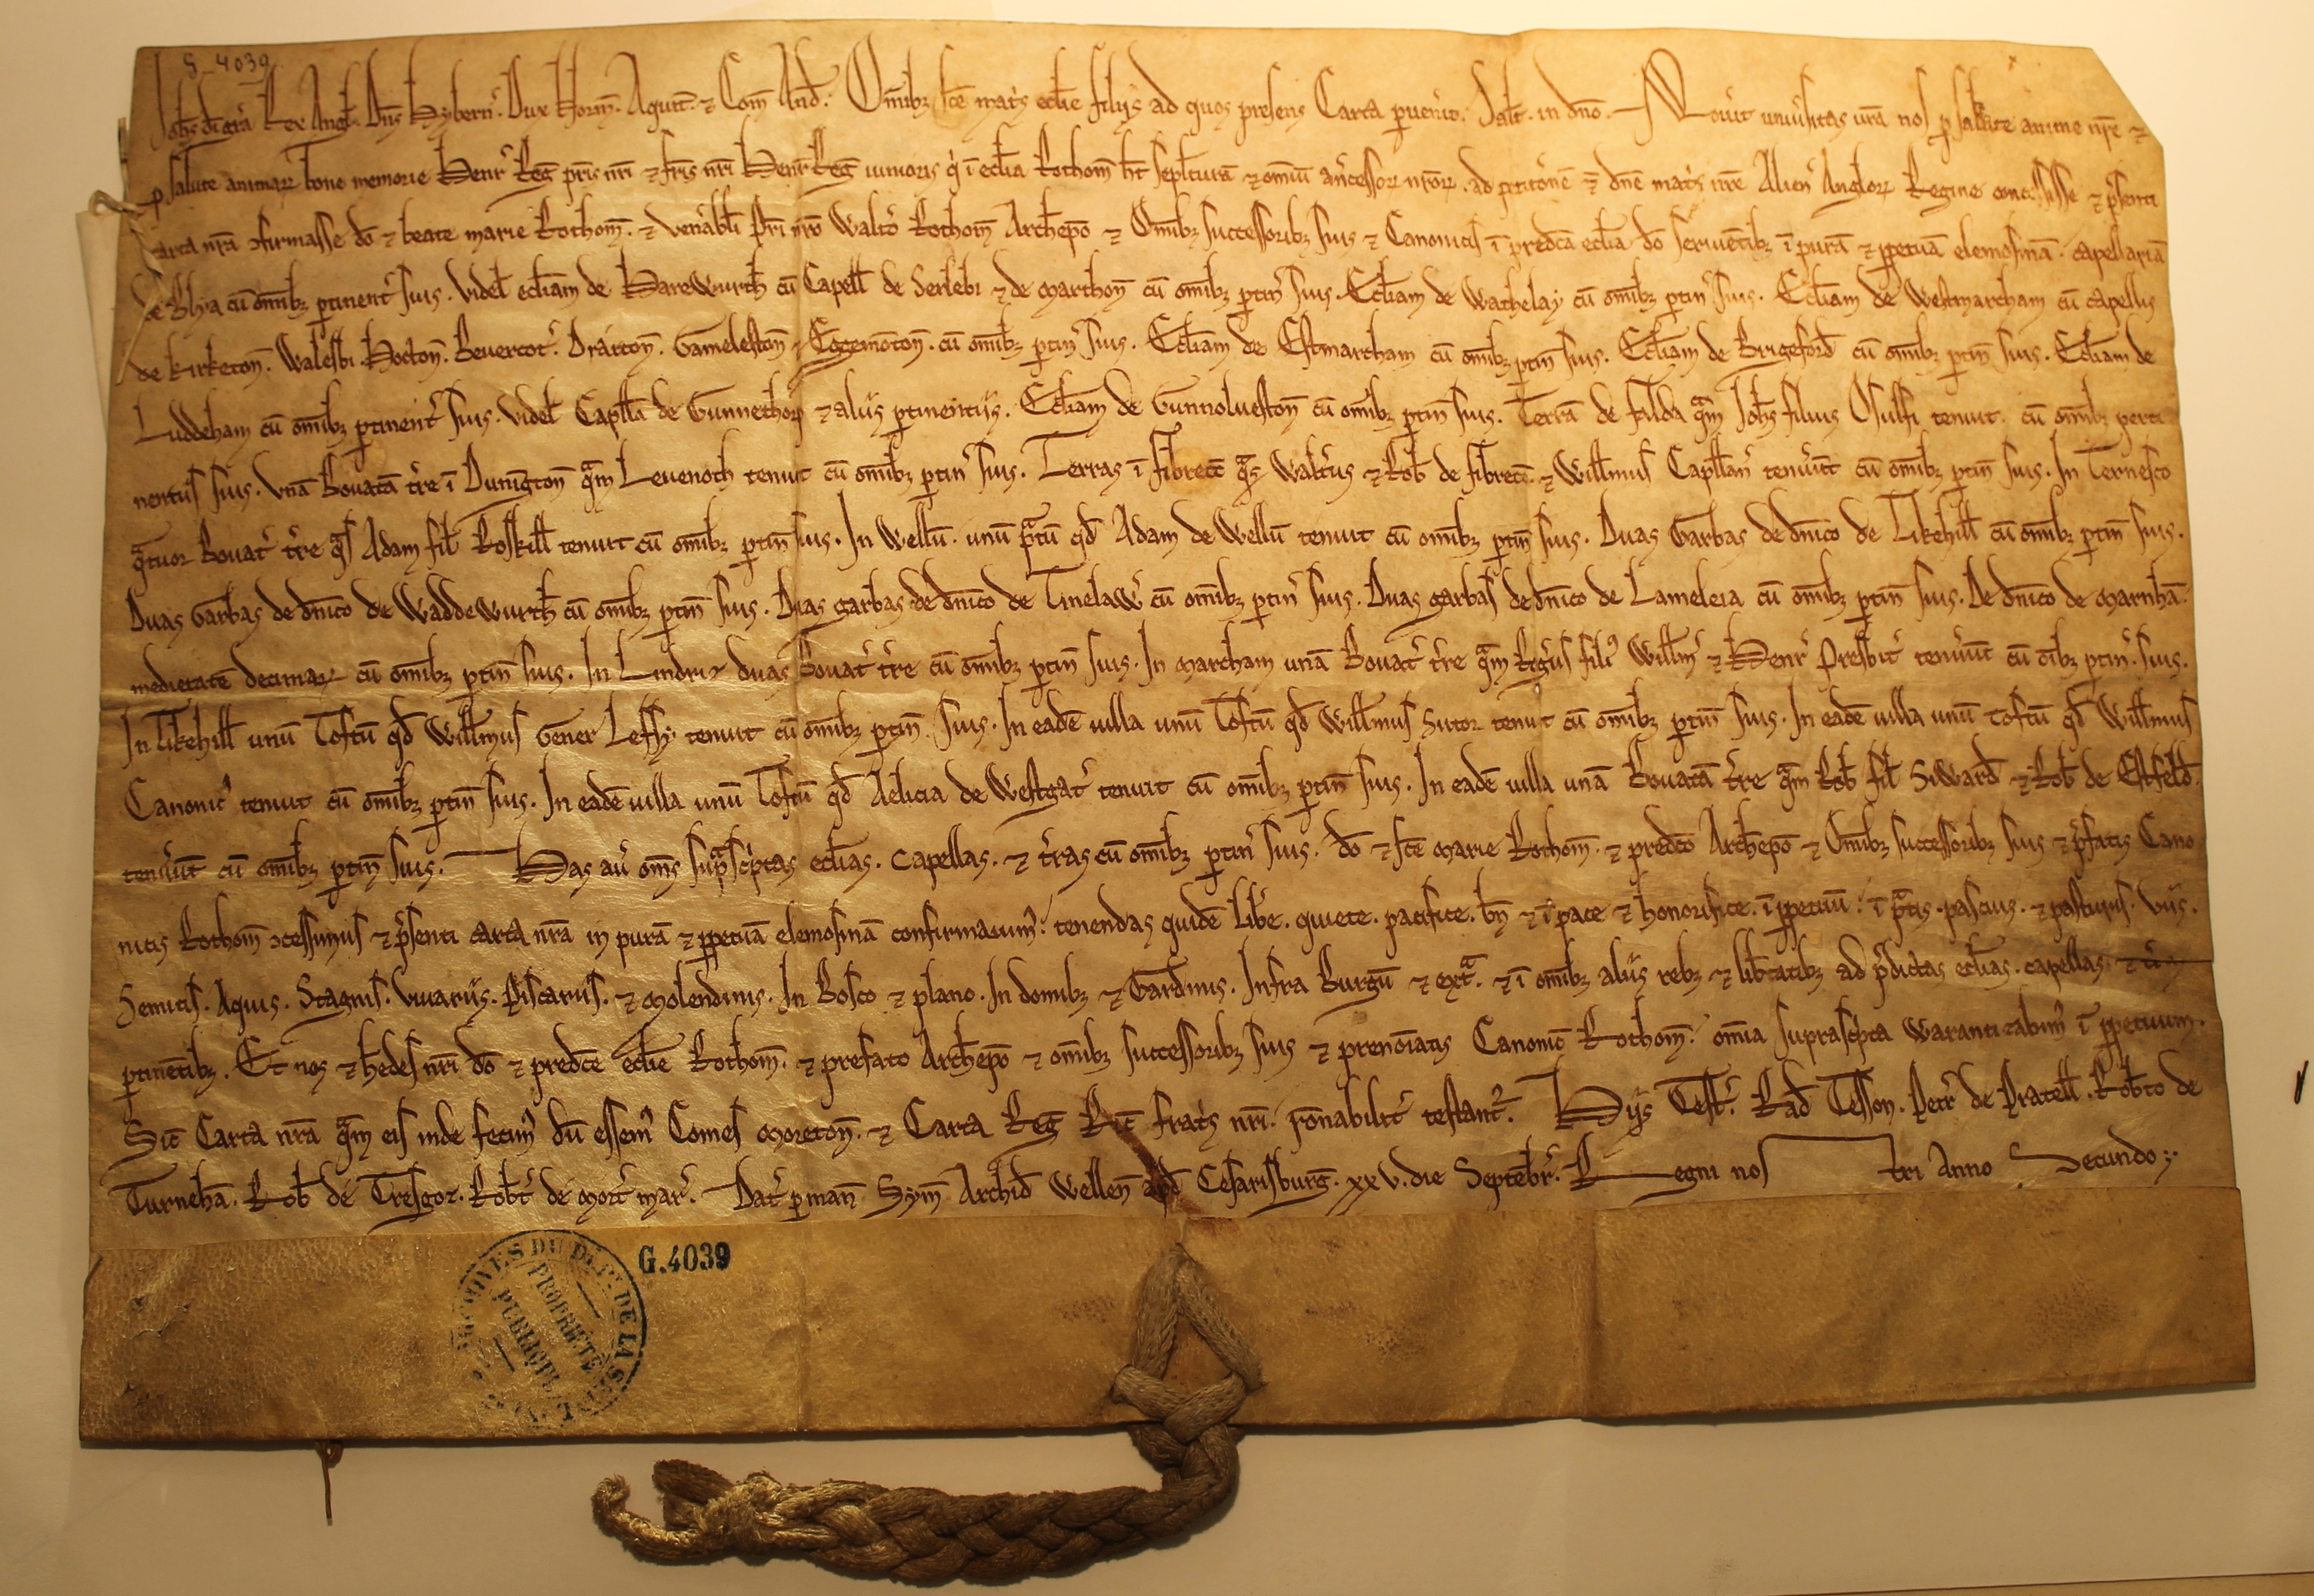 G 4039
Johs di gra Rex Angl. Dns Hybern. Dux Norm. Aquit. ⁊ Com And. Omnibz sce mats eclie filijs ad quos presens Carta puenit. Salt. in dno. Nouit uniusitas ura nos p salute anime nre ⁊
p salute animarz bone memorie Henr Reg pris nri ⁊ fris nri Henr Reg iunioris q i eclia Rothom ht sepltura ⁊ omiu ancessorz nrorz. ad petitone dne mats nre Alienor Anglorz Regine concessisse ⁊ psenti
Carta nra ↄfirmasse do ⁊ beate marie Rothom. ⁊ uenabli pri nro Walto Rothom Archepo ⁊ Omnibz successoribz suis ⁊ Canonicis i predca eclia do seruietibz i pura ⁊ ppetua elemosina. capellaria
de Blya cu omibz ptinent suis. videl ecliam de Harewurth cu Capell de Serlebi ⁊ de marthon cu omibz ptin suis. Ecliam de Wathelay cu omibz ptin suis. Ecliam de Westmarcham cu capellis
de kirketon. Walesbi. Hocton. Beuercot. Draiton. Gameleston ⁊ Eggemoton. cu omibz ptin suis. Ecliam de Estmarcham cu omibz ptin suis. Ecliam de Brigeford cu omibz ptin suis. Ecliam de
Luddeham cu omibz ptinent suis. videl Capllā de Gunnethorp ⁊ alijs ptinentijs. Ecliam de Gunnolueston cu omibz ptin suis. Terra de falda qm Johs filius Osulfi tenuit. cu omibz perti
nentiis suis. vna Bouata tre i Dunigton qm Leuenoth tenuit cu omibz ptin suis. Terras i fibrect qs Waltus ⁊ Rob de fibrect ⁊ Willmus Capllan tenuit cu omibz ptin suis. In Ternesco
qtuor Bouat tre qs Adam fil Roskill tenuit cu omibz ptin suis. In Wellu. unu ptu qd Adam de Wellu tenuit cu omibz ptin suis. Duas Garbas de dnico de Tikehill cu omibz ptin suis.
Duas Garbas de dnico de Waddewurth cu omibz ptin suis. Duas garbas de dnico de Tinelaw cu omibz ptin suis. Duas garbas de dnico de Lameleia cu omibz ptin suis. De dnico de marnha
medietate decimarz cu omibz ptin suis. In Lindric duas Bouat tre cu omibz ptin suis. In marcham una Bouat tre qm Rogus fili Willm ⁊ Henr Presbit tenuit cu oibz ptin suis.
In Tikehill unu Toftu qd Willmus Gener Leffy tenuit cu omibz ptin suis. In eade uilla unu Toftu qd Willmus Sutor tenuit cu omibz ptin suis. In eade uilla unu toftu qd Willmus
Canonic tenuit cu omibz ptin suis. In eade uilla unu Toftu qd Aelicia de Westgat tenuit cu omibz ptin suis. In eade uilla una Bouata tre qm Rob fil Siward ⁊ Rob de Estfeld.
tenuut cu omibz ptin suis. Has au oms suprascptas eclias. capellas. ⁊ tras cu omibz ptin suis. do ⁊ sce marie Rothom. ⁊ predco Archepo ⁊ Omibz successoribz suis ⁊ pfatis Cano
nicis Rothom ↄcessimus ⁊ psenti carta nra in pura ⁊ ppetua elemosina confirmauim. tenendas quide Libe. quiete. pacifice. bn ⁊ i pace ⁊ honorifice. i ppetuu. i ptis. pascuis. ⁊ pasturis. viis.
Semitis. Aquis. Stagnis. viuarijs. Piscarijs. ⁊ molendinis. In Bosco ⁊ plano. In domibz ⁊ Gardinis. Infra Burgu ⁊ ext. ⁊ i omibz alijs rebz ⁊ libtatibz ad pdictas eclias. capellas. ⁊
ptinetibz. Et nos ⁊ hedes nri do ⁊ predce eclie Rothom. ⁊ prefato Archepo ⁊ omibz successoribz suis ⁊ prenoiatis Canonic Rothom. omia suprascpta Warantizabim i ppetuum.
Sic Carta nra qm eis inde fecim du essem Comes moreton. ⁊ Carta Reg Ric fratis nri. ronabilit testant. Hijs Test. Rad Tesson. Petr de Pratell. Robto de
Turneha. Rob de Tresgoz. Robt de mort mar. Dat p man Sym Archid Wellen apd Cesarisburg. xxv. die Septebr. Regni nostri Anno Secundo
G.4039
ARCHIVES DU DÉPT DE LA S
PROPRIÉTÉ
PUBLIQUE